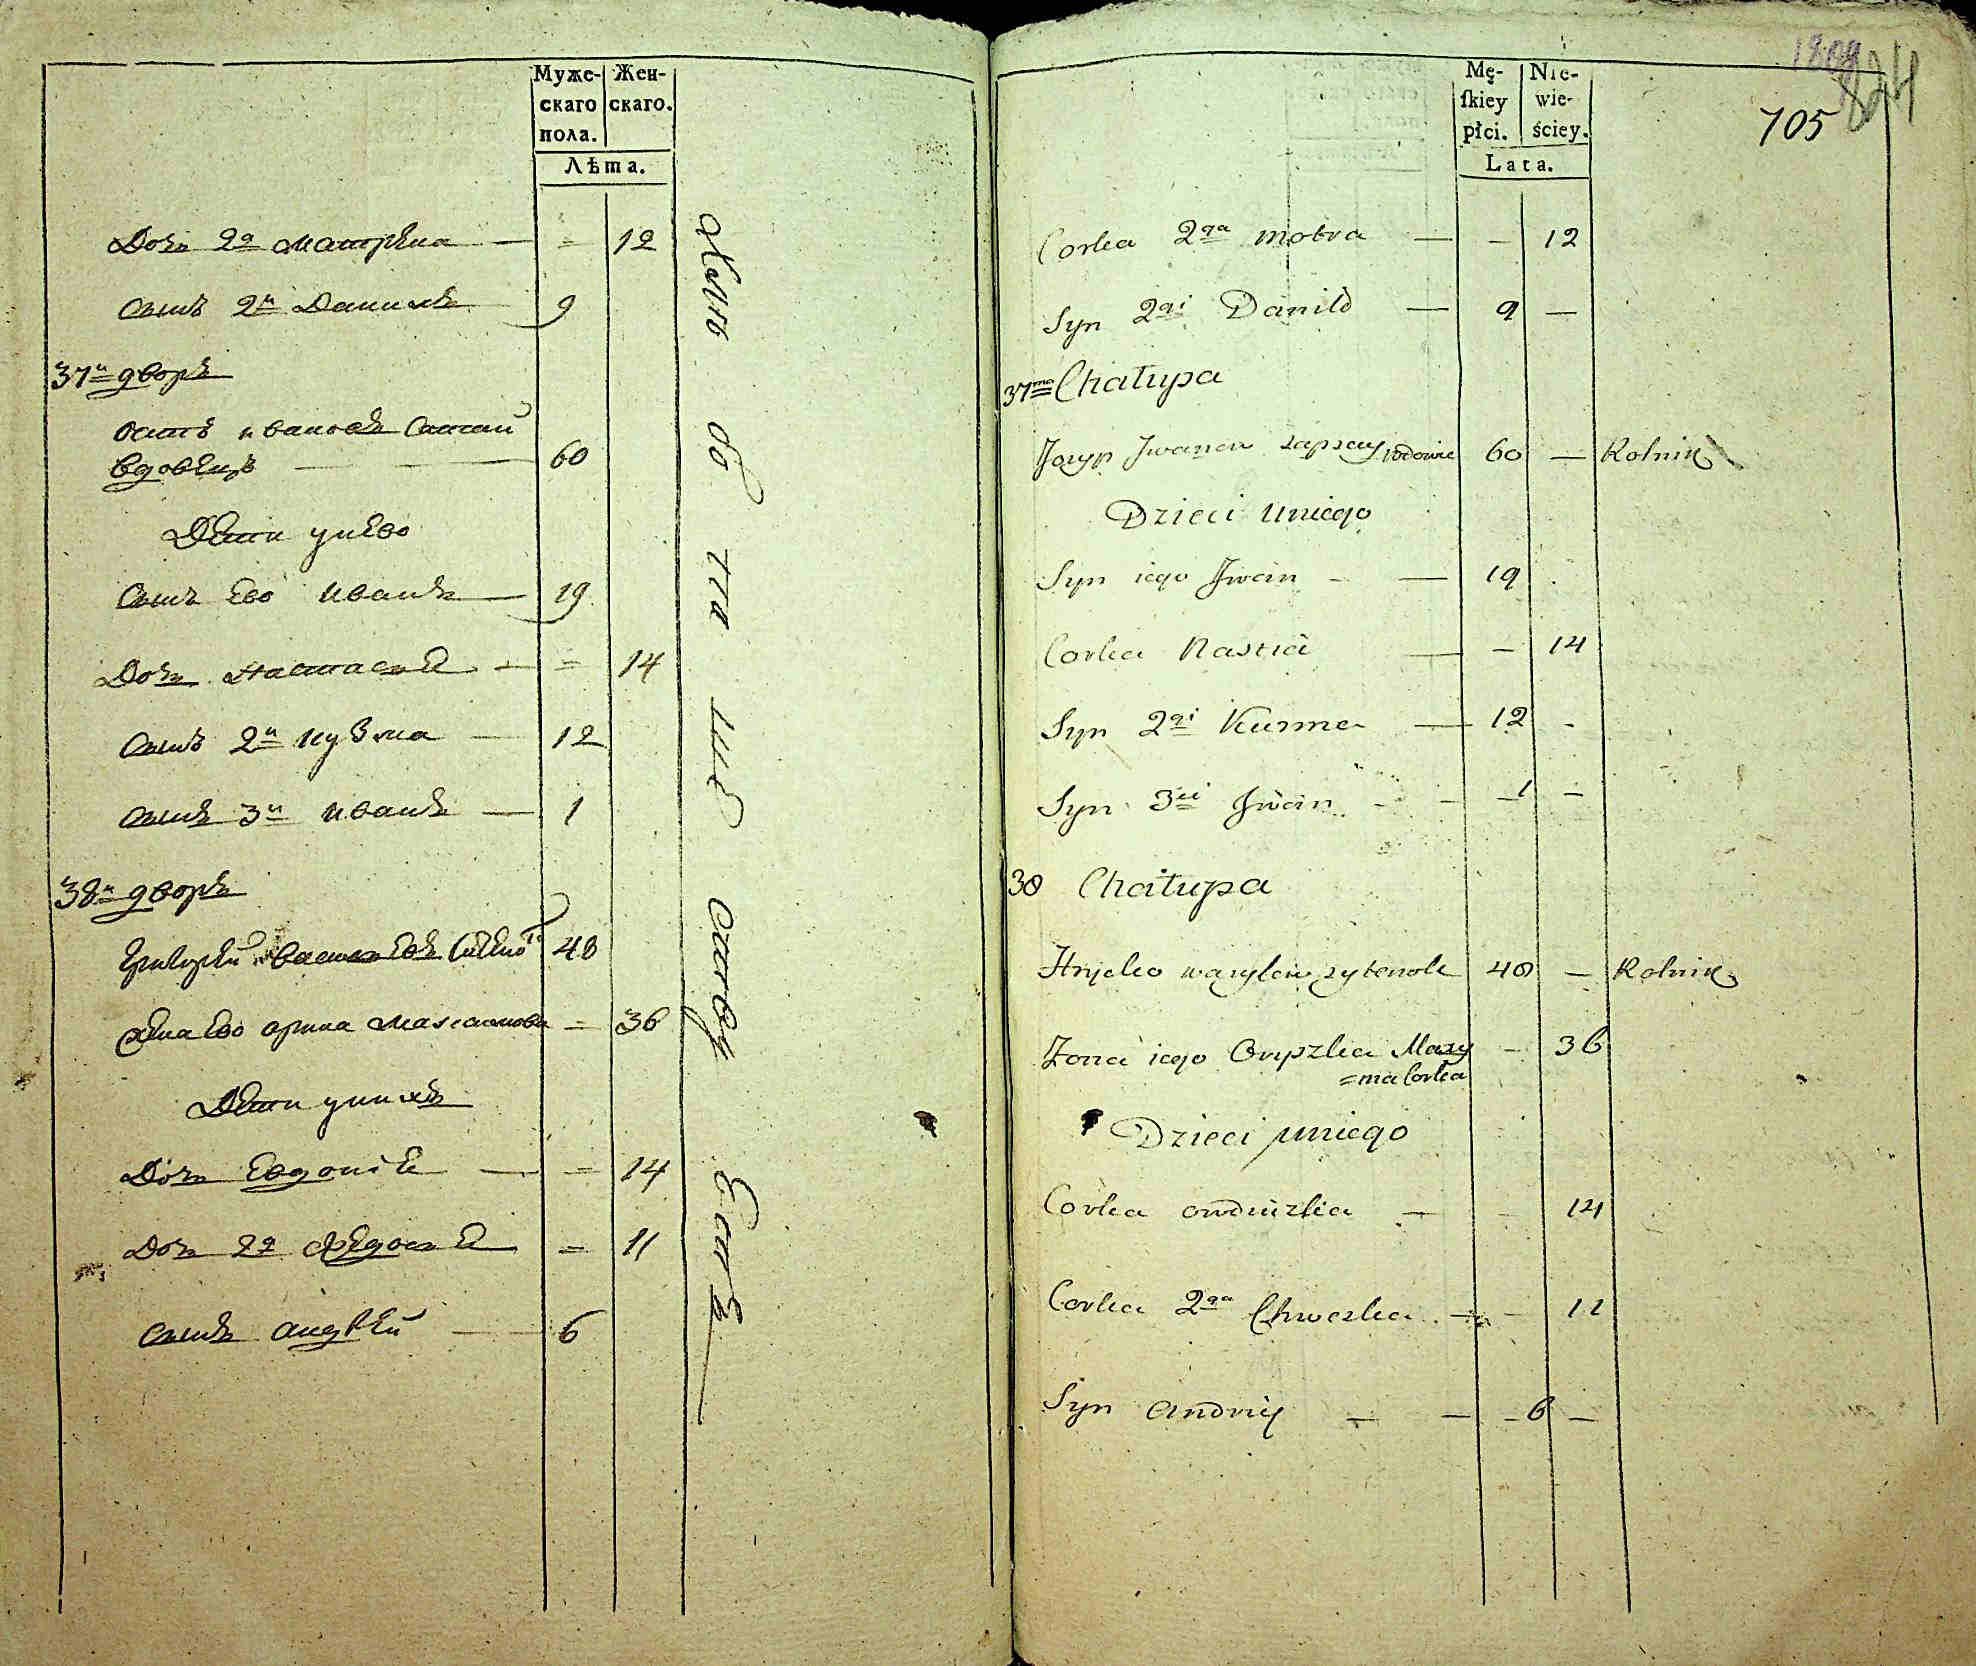 Муже-
скаго
пола.
Жен-
скаго.
Лѣта.
Дочь 2я Матрена — = 12
сынъ 2й Данила 9
37й дворъ
Осипъ Ивановъ
вдовецъ — 60
Дети унево
сынъ Ево Иванъ — 19
Дочь Настасья — = 14
сынъ 2й Кузма — 12
сынъ 3й Иванъ — 1
38й дворъ
Григорей Васильевъ 48
жена Ево Арина Максимова = 36
Дети унихъ
Дочь Евдокiя — = 14
Дочь 2я Федосья = 11
сынъ Андрей — 6
Mę-
ſkiey
płci.
Nie-
wie-
ściey.
Lata.
1809
824
705
Corka 2ga Motra — — 12
Syn 2gi Daniło — 9 —
37ma Chałupa
Jozyp Iwanow wdowiec 60 — Rolnik
Dzieci uniego
Syn iego Iwan — — 19
Corka Nastia — — 14
Syn 2gi Kuzma — 12 -
Syn 3ci Iwan - - 1 —
38 Chałupa
Hryćko Wasylow 48 — Rolnik
Żona iego Oryszka Maxy - 36
=ma Corka
Dzieci uniego
Corka Owdiuszka — - 14
Corka 2ga Chweśka — - 11
Syn Andriy — — - 6 —